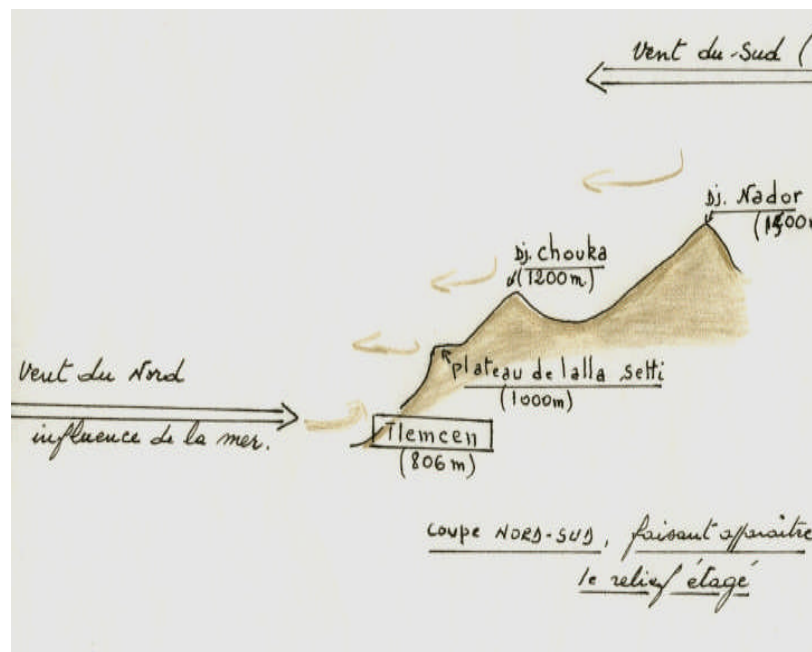 Vent du Sud (
Dj. Nador
Dj. Chouka
(1200m)
plateau de lalla setti
(1000m)
Vent du Nord
influence de la mer.
Tlemcen
(806m)
coupe NORD-SUD, faisant apparaître
le relief étagé